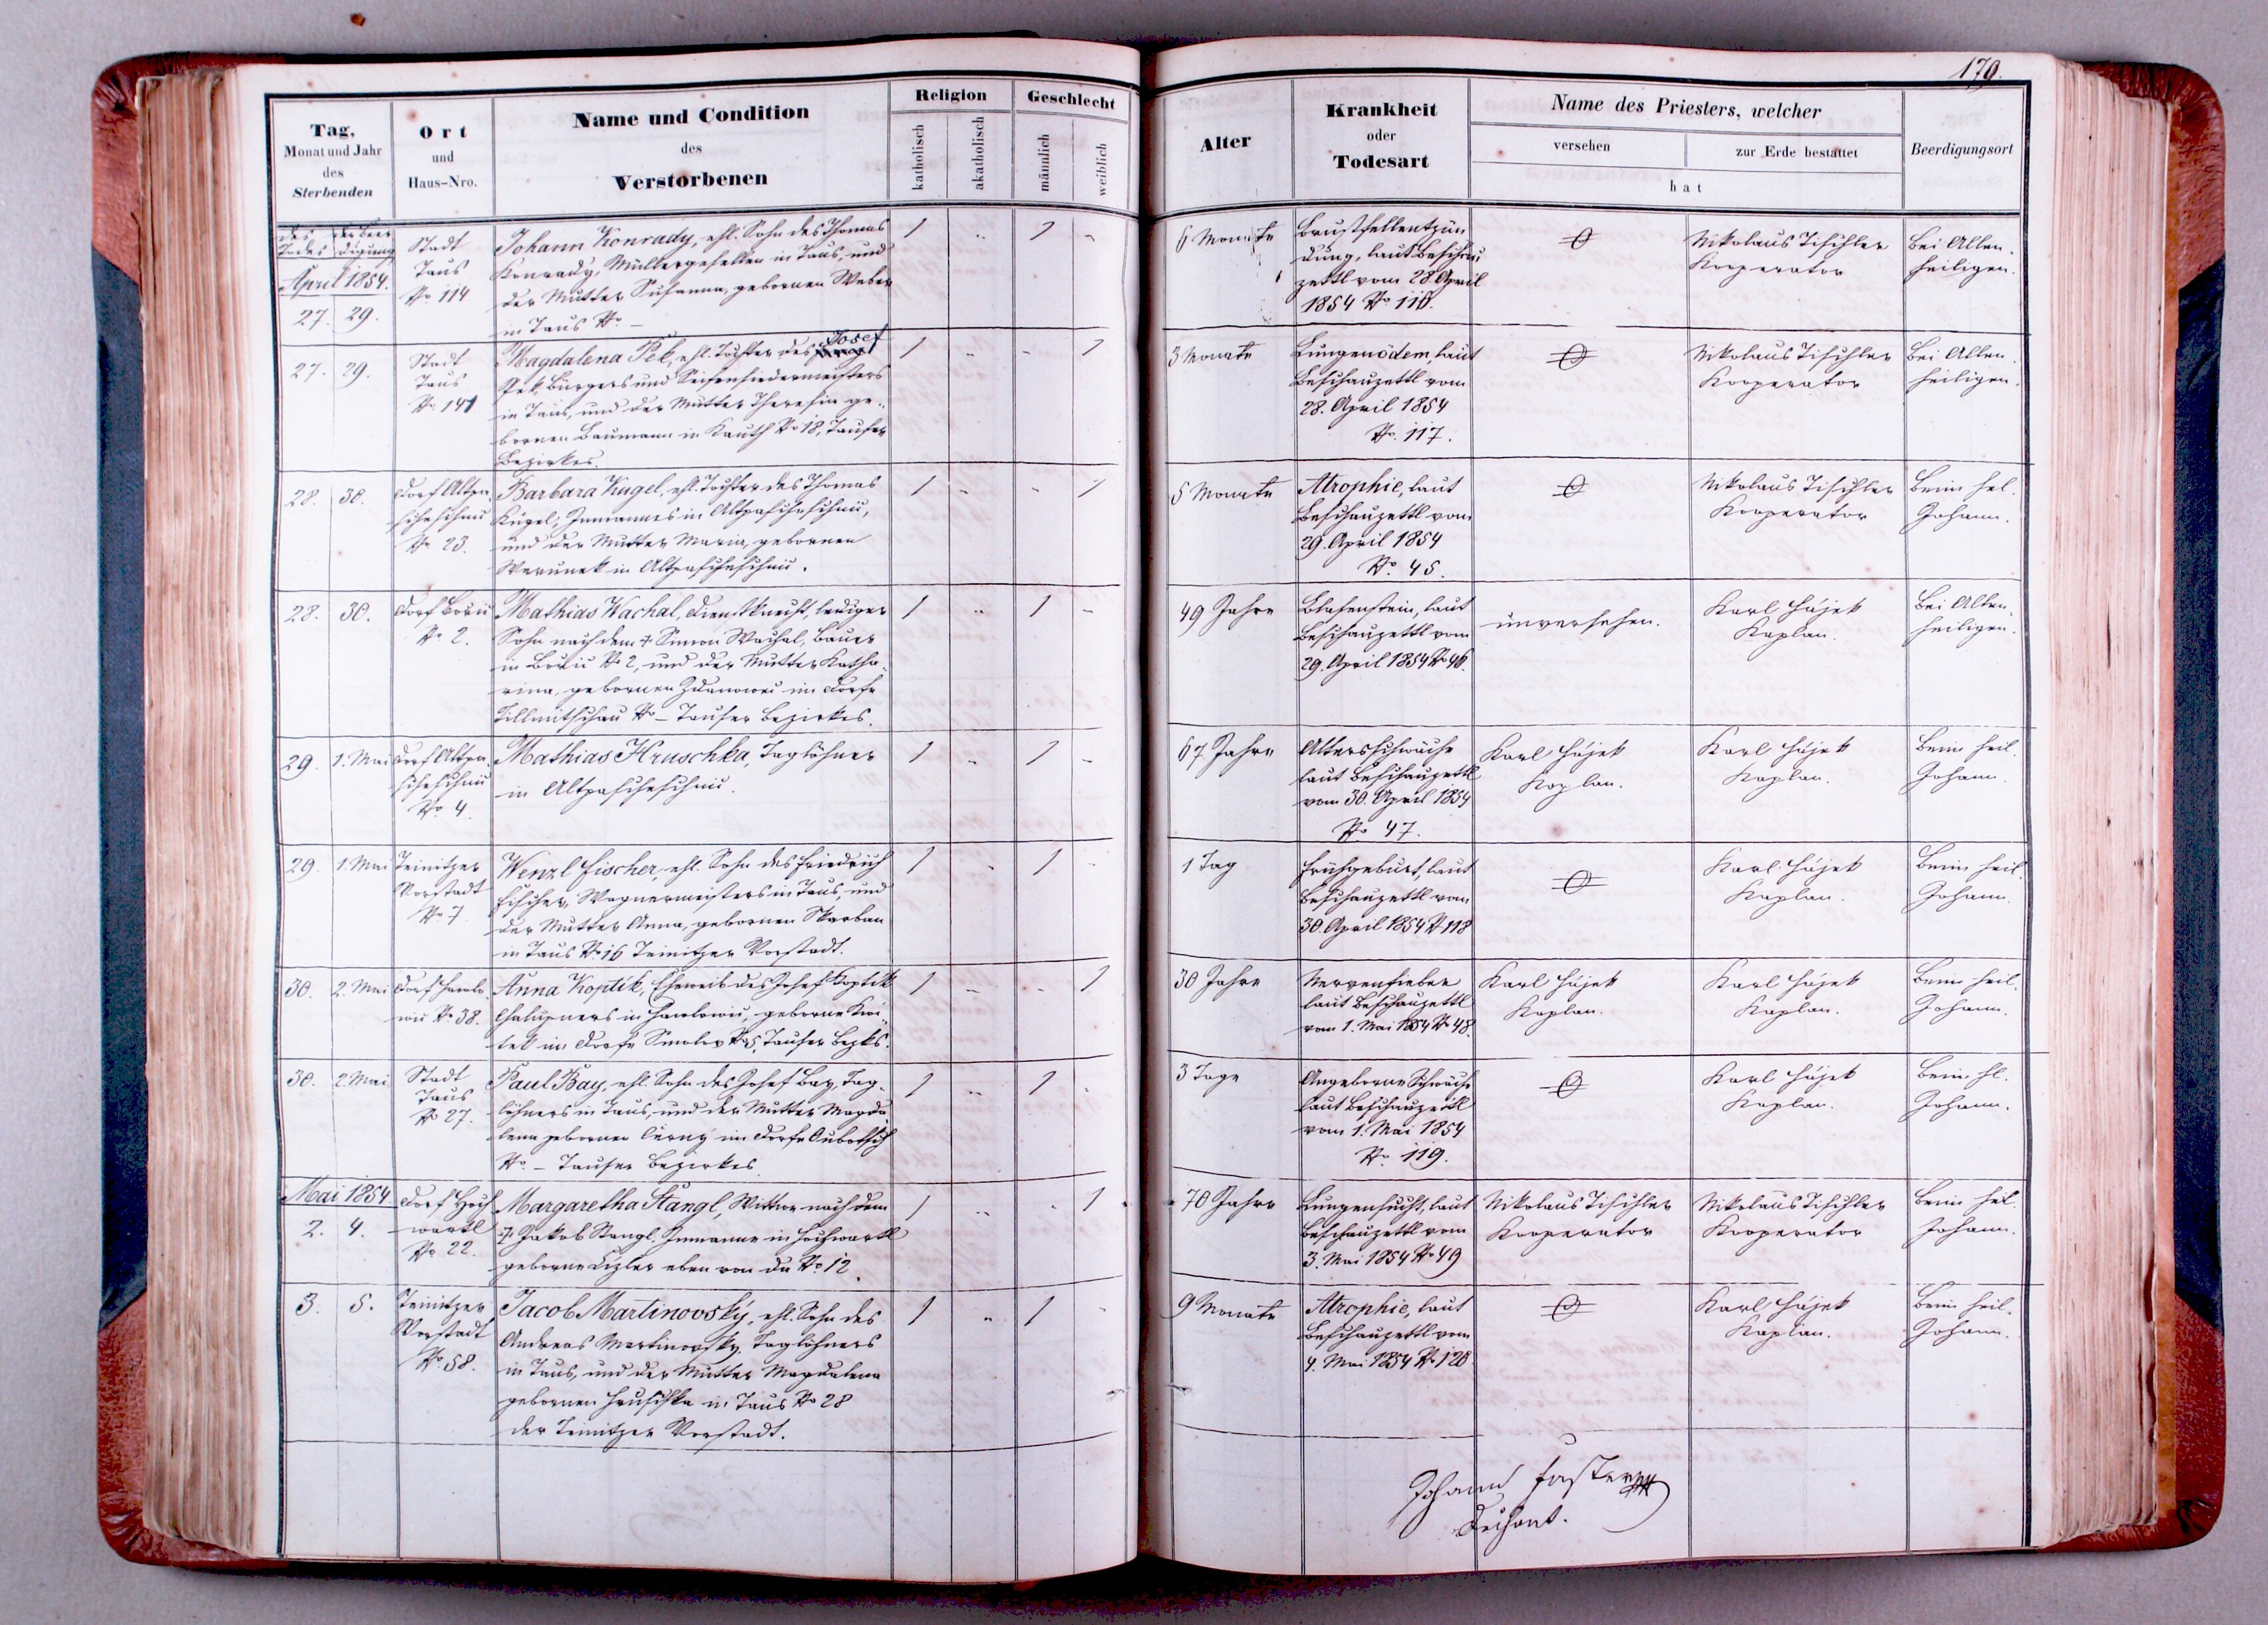 179.
Tag,
Monat und Jahr
des
Sterbenden
Ort
und
Haus-Nro.
Name und Condition
des
Verstorbenen
Religion
katholisch
akatholisch
Geschlecht
männlich
weiblich
Alter
Krankheit
oder
Todesart
Name des Priesters, welcher
versehen
zur Erde bestattet
hat
Beerdigungsort
des Todes
der Beerdigung
April 1854.
27. 29.
Stadt
Taus
No 114
Johann Konrady, ehl. Sohn des Thomas
Konrady, Müllergesellen in Taus, und
der Mutter Susanna, gebornen Weber
in Taus No. –
1 „ 1 „
6 Monate
Brustfellentzün
dung, laut Beschau
zettl vom 28. April
1854 No 116.
Nikolaus Tischler
Kooperator
Bei Allen
heiligen.
27. 29.
Stadt
Taus
No 141
Magdalena Pek, ehl. Tochter des Josef
Pek, Bürgers und Seifensiedermeisters
in Taus, und der Mutter Theresia ge-
bornen Baumann in Kauth No 18, Tauser
Bezirkes.
1 „ „ 1
3 Monate
Lungenödem, laut
Beschauzettl vom
28. April 1854
No. 117.
Nikolaus Tischler
Kooperator
Bei Allen
heiligen.
28. 30.
Dorf Altpa
scheschnü
No 23.
Barbara Kugel, ehl. Tochter des Thomas
Kugel, Inmannes in Altpascheschnü,
und der Mutter Maria, gebornen
Werunek in Altpascheschnü.
1 „ „ 1
5 Monate
Atrophie, laut
Beschauzettl vom
29. April 1854
No. 45.
Nikolaus Tischler
Kooperator
Beim hel.
Johann.
28. 30.
Dorf
No 2.
Mathias Wachal, Dienstknecht, lediger
Sohn nach dem † Simon Wachal, Bauer
in No 2, und der Mutter Katha-
rina, gebornen im Dorfe
Tillmitschau No – Tauser Bezirkes.
1 „ 1 „
49 Jahre
Blasenstein, laut
Beschauzettl vom
29. April 1854 No 46.
unversehen.
Karl Hájek
Kaplan.
Bei Allen
heiligen.
29. 1. Mai
Dorf Altpa
scheschnü
No. 4.
Mathias Hruschka, Taglöhner
in Altpascheschnü.
1 „ 1 „
67 Jahre
Altersschwäche
laut Beschauzettl
vom 30. April 1854
No 47.
Karl Hájek
Kaplan.
Karl Hájek
Kaplan.
Beim heil.
Johann.
29. 1. Mai
Teinitzer
Vorstadt
No 7.
Wenzl Fischer, ehl. Sohn des Friedrich
Fischer, Wagnermeisters in Taus, und
der Mutter Anna, gebornen Skarban
in Taus No 16 Teinitzer Vorstadt.
1 „ 1 „
1 Tag
Frühgeburt, laut
Beschauzettl vom
30. April 1854 No 118
Karl Hájek
Kaplan.
Beim heil.
Johann.
30. 2. Mai
Dorf Hawlo
wü No 38.
Anna Koptik, Eheweib des Josef Koptik
Chalupners in Hawlowü, geborne Kwi-
tek im Dorfe Smolow No 5, Tauser Bezks.
1 „ „ 1
30 Jahre
Nervenfieber
laut Beschauzettl
vom 1. Mai 1854 No 48.
Karl Hájek
Kaplan.
Karl Hájek
Kaplan.
Beim heil.
Johann.
30. 2. Mai
Stadt
Taus
No 27.
Paul Bay, ehl. Sohn des Josef Bay, Tag-
löhners in Taus, und der Mutter Magda
lena gebornen Černý im Dorfe Aubotsch
No. – Tauser Bezirkes.
1 „ 1 „
3 Tage
Angeborne Schwäche
laut Beschauzettl
vom 1. Mai 1854
No. 119.
Karl Hájek
Kaplan.
Beim hl.
Johann.
Mai 1854.
2. 4.
Dorf Hoch
wartl
No 22.
Margaretha Stangl, Wittwe nach dem
† Jakob Stangl, Inmanne in Hochwartl
geborne Lizler eben von da No. 12.
1 „ „ 1
70 Jahre
Lungensucht, laut
Beschauzettl vom
3. Mai 1854 No 49
Nikolaus Tischler
Kooperator
Nikolaus Tischler
Kooperator
Beim heil.
Johann.
3. 5.
Teinitzer
Vorstadt
No. 58.
Jacob Martinovský, ehl. Sohn des
Andreas Martinovsky, Taglöhners
in Taus, und der Mutter Magdalena
gebornen Hruschka in Taus No 28
der Teinitzer Vorstadt.
1 „ 1 „
9 Monate
Atrophie, laut
Beschauzettl vom
4. Mai 1854 No 120
Karl Hájek
Kaplan.
Beim heil.
Johann.
Johann Faster
Dechant.